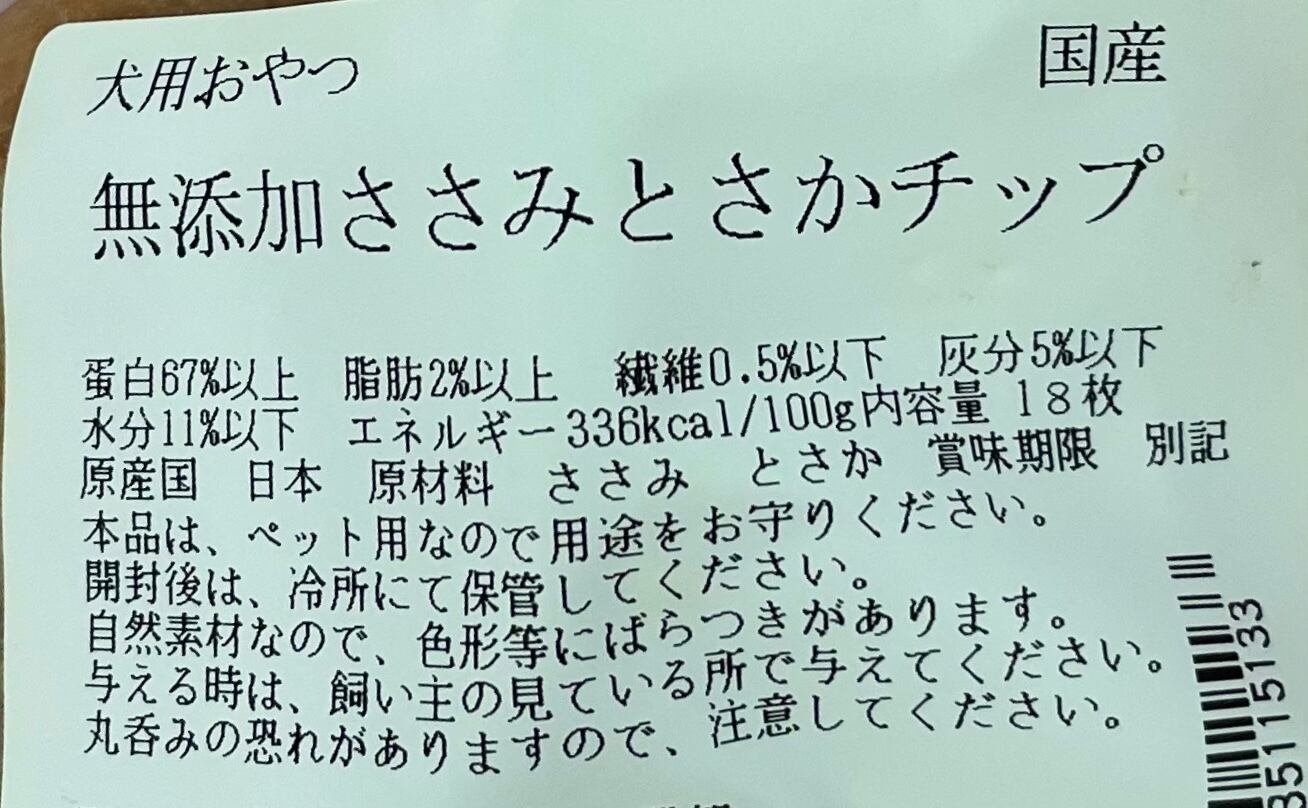 犬用おやつ 国産
無添加ささみとさかチップ
蛋白67%以上 脂肪2%以上 繊維0.5%以下 灰分5%以下
水分11%以下 エネルギー336kcal/100g内容量 18枚
原産国 日本 原材料 ささみ とさか 賞味期限 別記
本品は、ペット用なので用途をお守りください。
開封後は、冷所にて保管してください。
自然素材なので、色形等にばらつきがあります。
与える時は、飼い主の見ている所で与えてください。
丸呑みの恐れがありますので、注意してください。
35115133